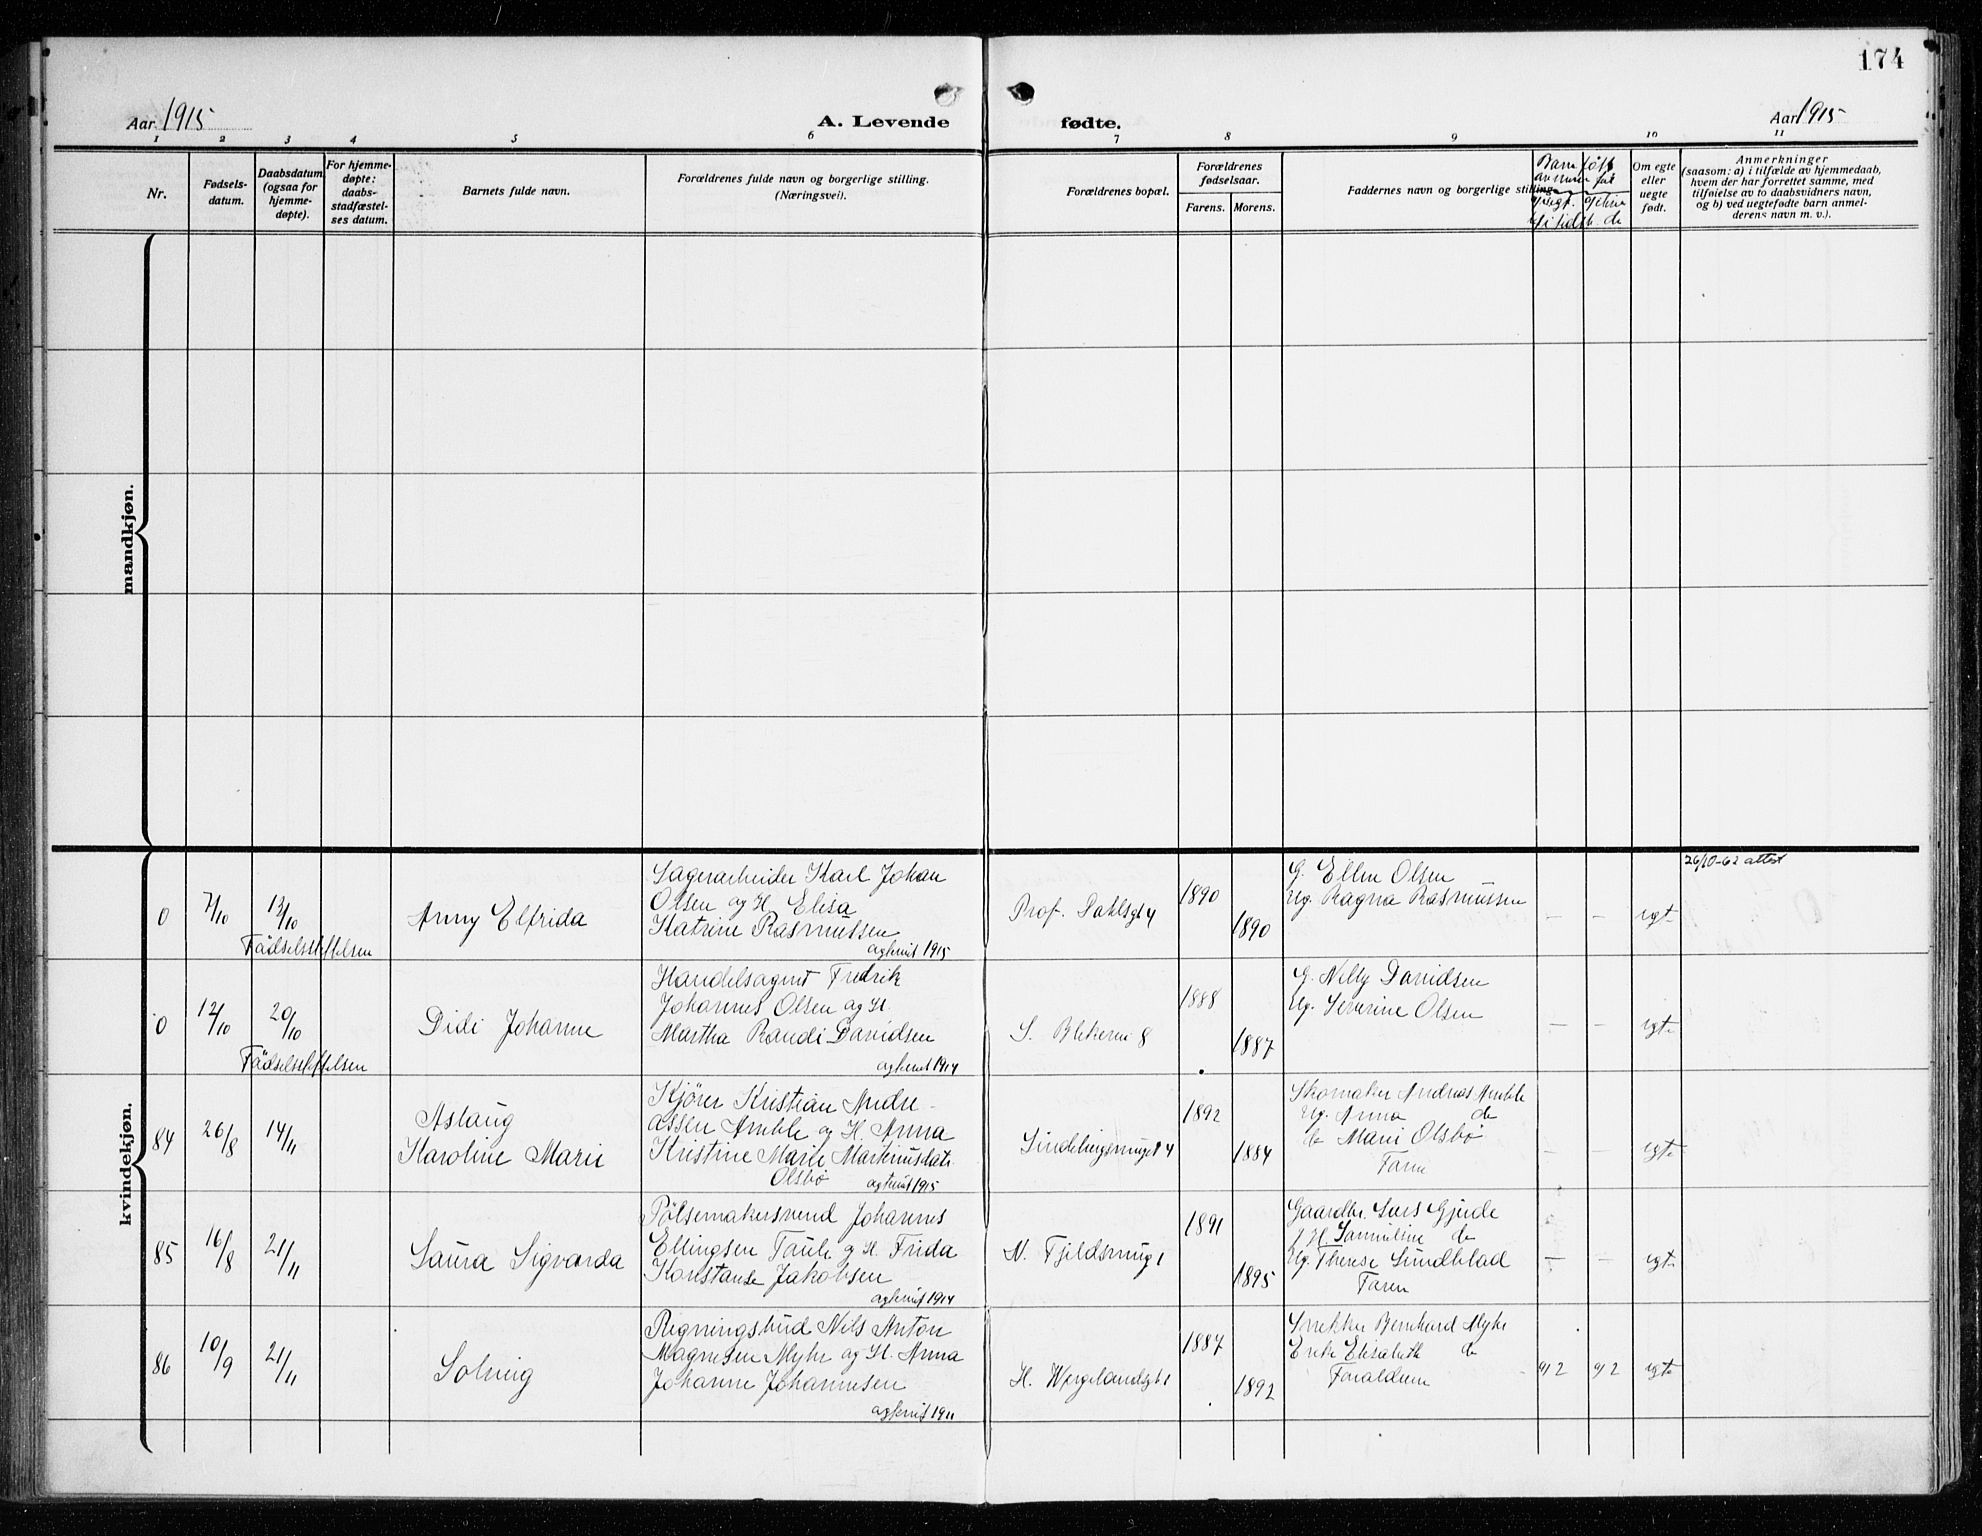 174
Aar 1915
A. Levende fødte.
Aar 1915
1 2 3 4 5 6 7 8 9 10 11
Nr.
Fødsels-
datum.
Daabsdatum
(ogsaa for
hjemme-
døpte).
For hjemme-
døpte:
daabs-
stadfæstel-
ses datum.
Barnets fulde navn.
Forældrenes fulde navn og borgerlige stilling.
(Næringsvei).
Forældrenes bopæl.
Forældrenes
fødselsaar.
Farens. Morens.
Faddernes navn og borgerlige stilling.
Barn født
av mor far
Om egte
eller
uegte
født.
Anmerkninger
(saasom: a) i tilfælde av hjemmedaab,
hvem der har forrettet samme, med
tilføielse av to daabsvidners navn,
og b) ved uegtefødte barn anmel-
derens navn m. v.).
mandkjøn.
kvindekjøn.
0
7/10
13/10
Fødselsstiftelsen
Anny Elfrida
Lagerarbeider Karl Johan
Olsen og H. Elisa
Katrine Rasmussen
agtevit 1915
Prof. Dahlsgt 4
1890
1890
G. Ellen Olsen
Ug. Ragna Rasmussen
— —
egte
26/10-62 attest
0
12/10
20/10
Fødselsstiftelsen
Didi Johanne
Handelsagent Fredrik
Johannes Olsen og H.
Martha Randi Davidsen
agtevit 1914
S. Blekevei 8
1888
1887
G. Nelly Davidsen
Ug. Severine Olsen
— —
egte
84
26/8
14/11
Aslaug
Karoline Marie
Kjører Kristian Andre-
assen Amble og H. Anna
Kristine Marie Markusdatr
Olsbø agtevit 1915
1892
1884
Skomaker Andreas Amble
Ug. Anna do
do Marie Olsbø
Faren
— —
egte
85
16/8
21/11
Laura Sigvarda
Pølsemakersvend Johannes
Ellingsen Taule og H. Frida
Konstanse Jakobsen
agtevit 1914
N. Fjeldsmug 1
1891
1895
Gaardbr. Lars Gjerde
g H. Samueline do
Ug. Therese Lundblad
Faren
— —
egte
86
10/9
21/11
Solveig
Regningsbud Nils Anton
Magnesen Myhr og H. Anna
Johanne Johannesen
agtevit 1911
H. Wergelandsgt 1
1887
1892
Snekker Bernhard Myhr
Enke Elisabeth do
Forældrene
g 2 g 2
egte